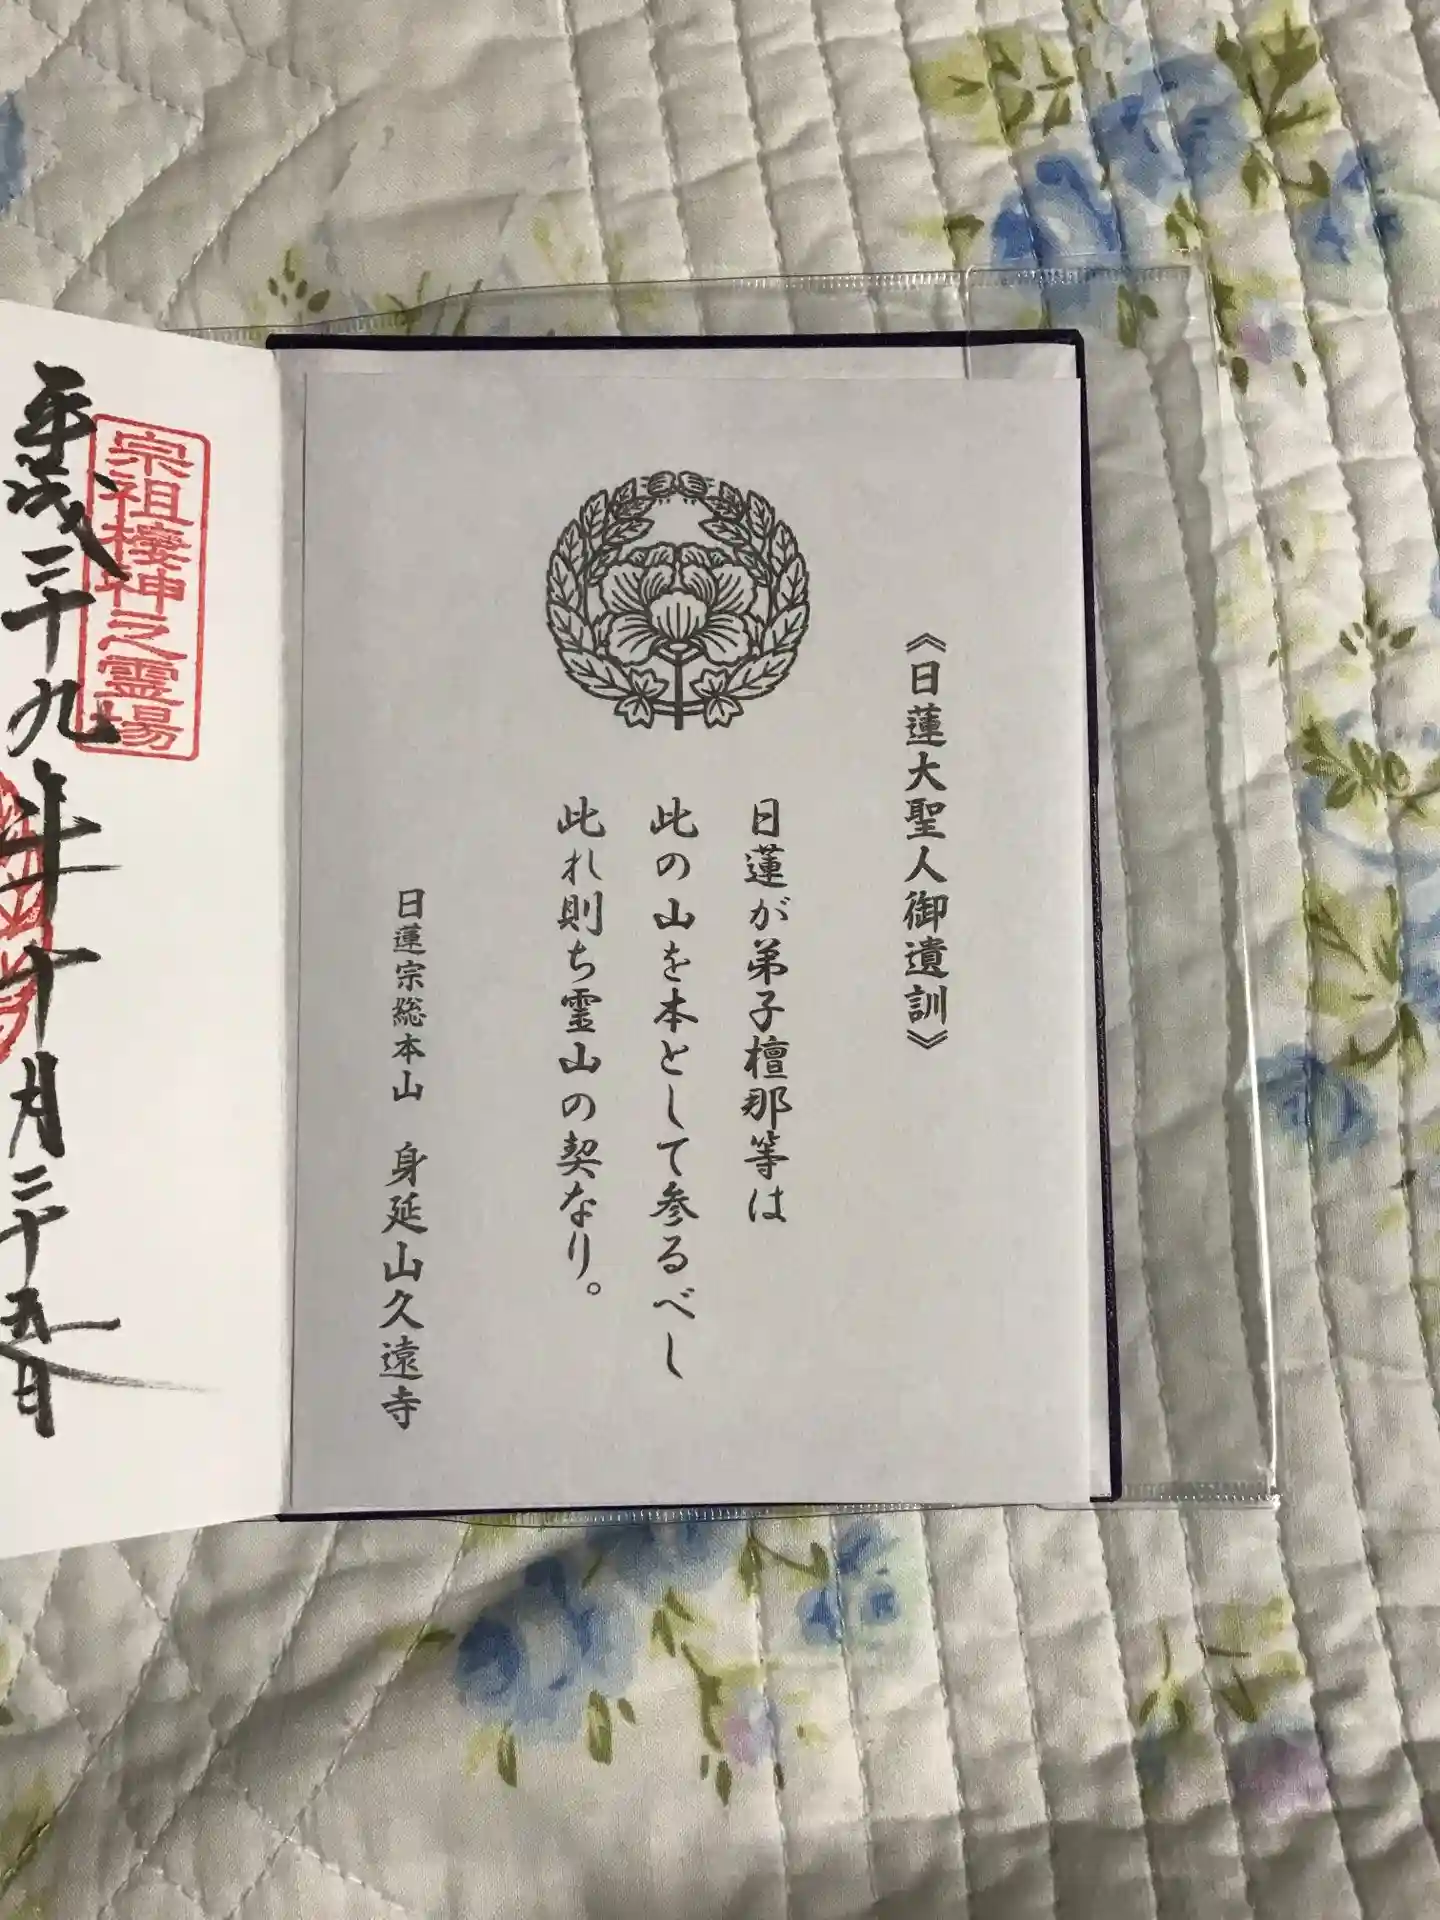 《日蓮大聖人御遺訓》
日蓮が弟子檀那等は
此の山を本として参るべし
此れ則ち霊山の契なり。
日蓮宗総本山　身延山久遠寺
宗祖棲神之霊場
平成二十九年十月二十五日